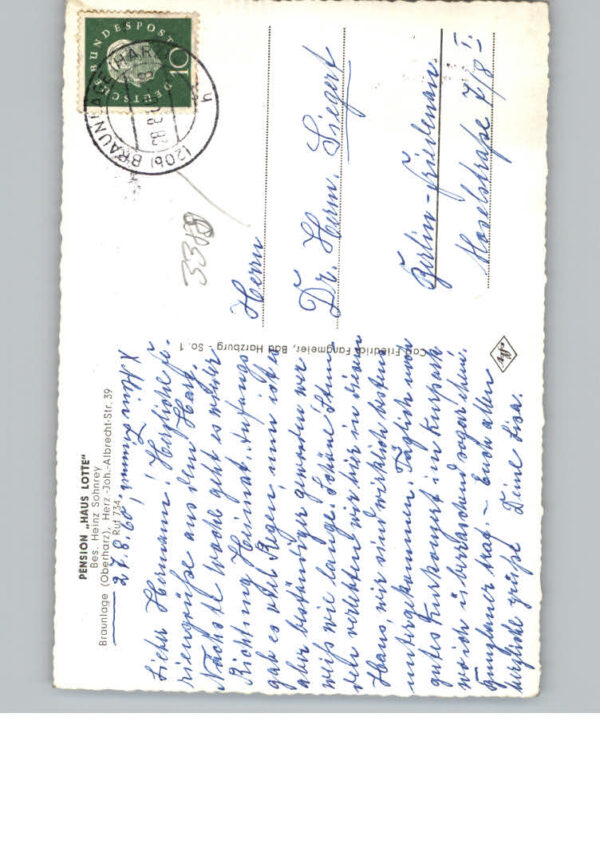 PENSION „HAUS LOTTE"
Bes. Heinz Sohnrey
Braunlage (Oberharz), Herz.-Joh.-Albrecht-Str. 39
Ruf 734
27.8.60
X Unser Zimmer!
Lieber Hermann! Herzliche Fe-
riengrüße aus dem Harz.
Nächste Woche geht es wieder
Richtung Heimat. Anfangs
gab es viel Regen, nun ist es
aber beständiger geworden wer
weiß wie lange. Schöne Stun-
den verlebten wir hier in diesem
Haus, wir sind wirklich bestens
untergekommen. Täglich auch
gutes Kurkonzert im Kurpark
wo ich überraschend sogar hin
mag. – Euch allen
herzliche Grüße Deine Lisa.
Carl Friedrich Fangmeier, Bad Harzburg - So. 1
Agfa
DEUTSCHE BUNDESPOST
10
(20b) BRAUNLAGE (HARZ)
3388
Herrn
Dr. Herm. Siegert
Berlin-Friedenau.
Moselstraße 7/8 I.